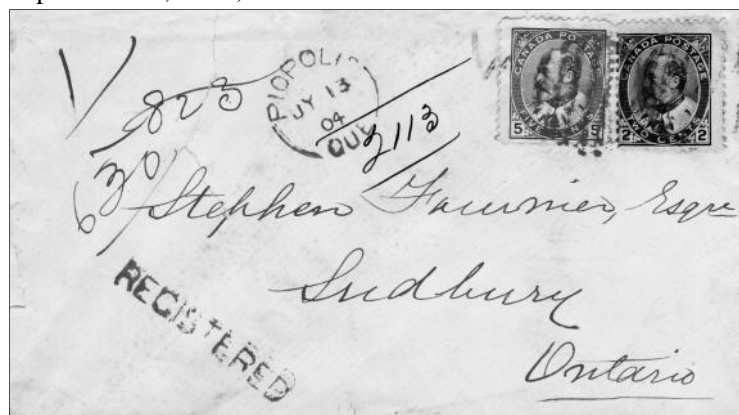 PIOPOLIS
JY 13
04
QUE
CANADA POSTAGE
5 5
FIVE CENTS
CANADA POSTAGE
2 2
TWO CENTS
823
2113
630
Stephen Fournier, Esqre
Sudbury
Ontario
REGISTERED